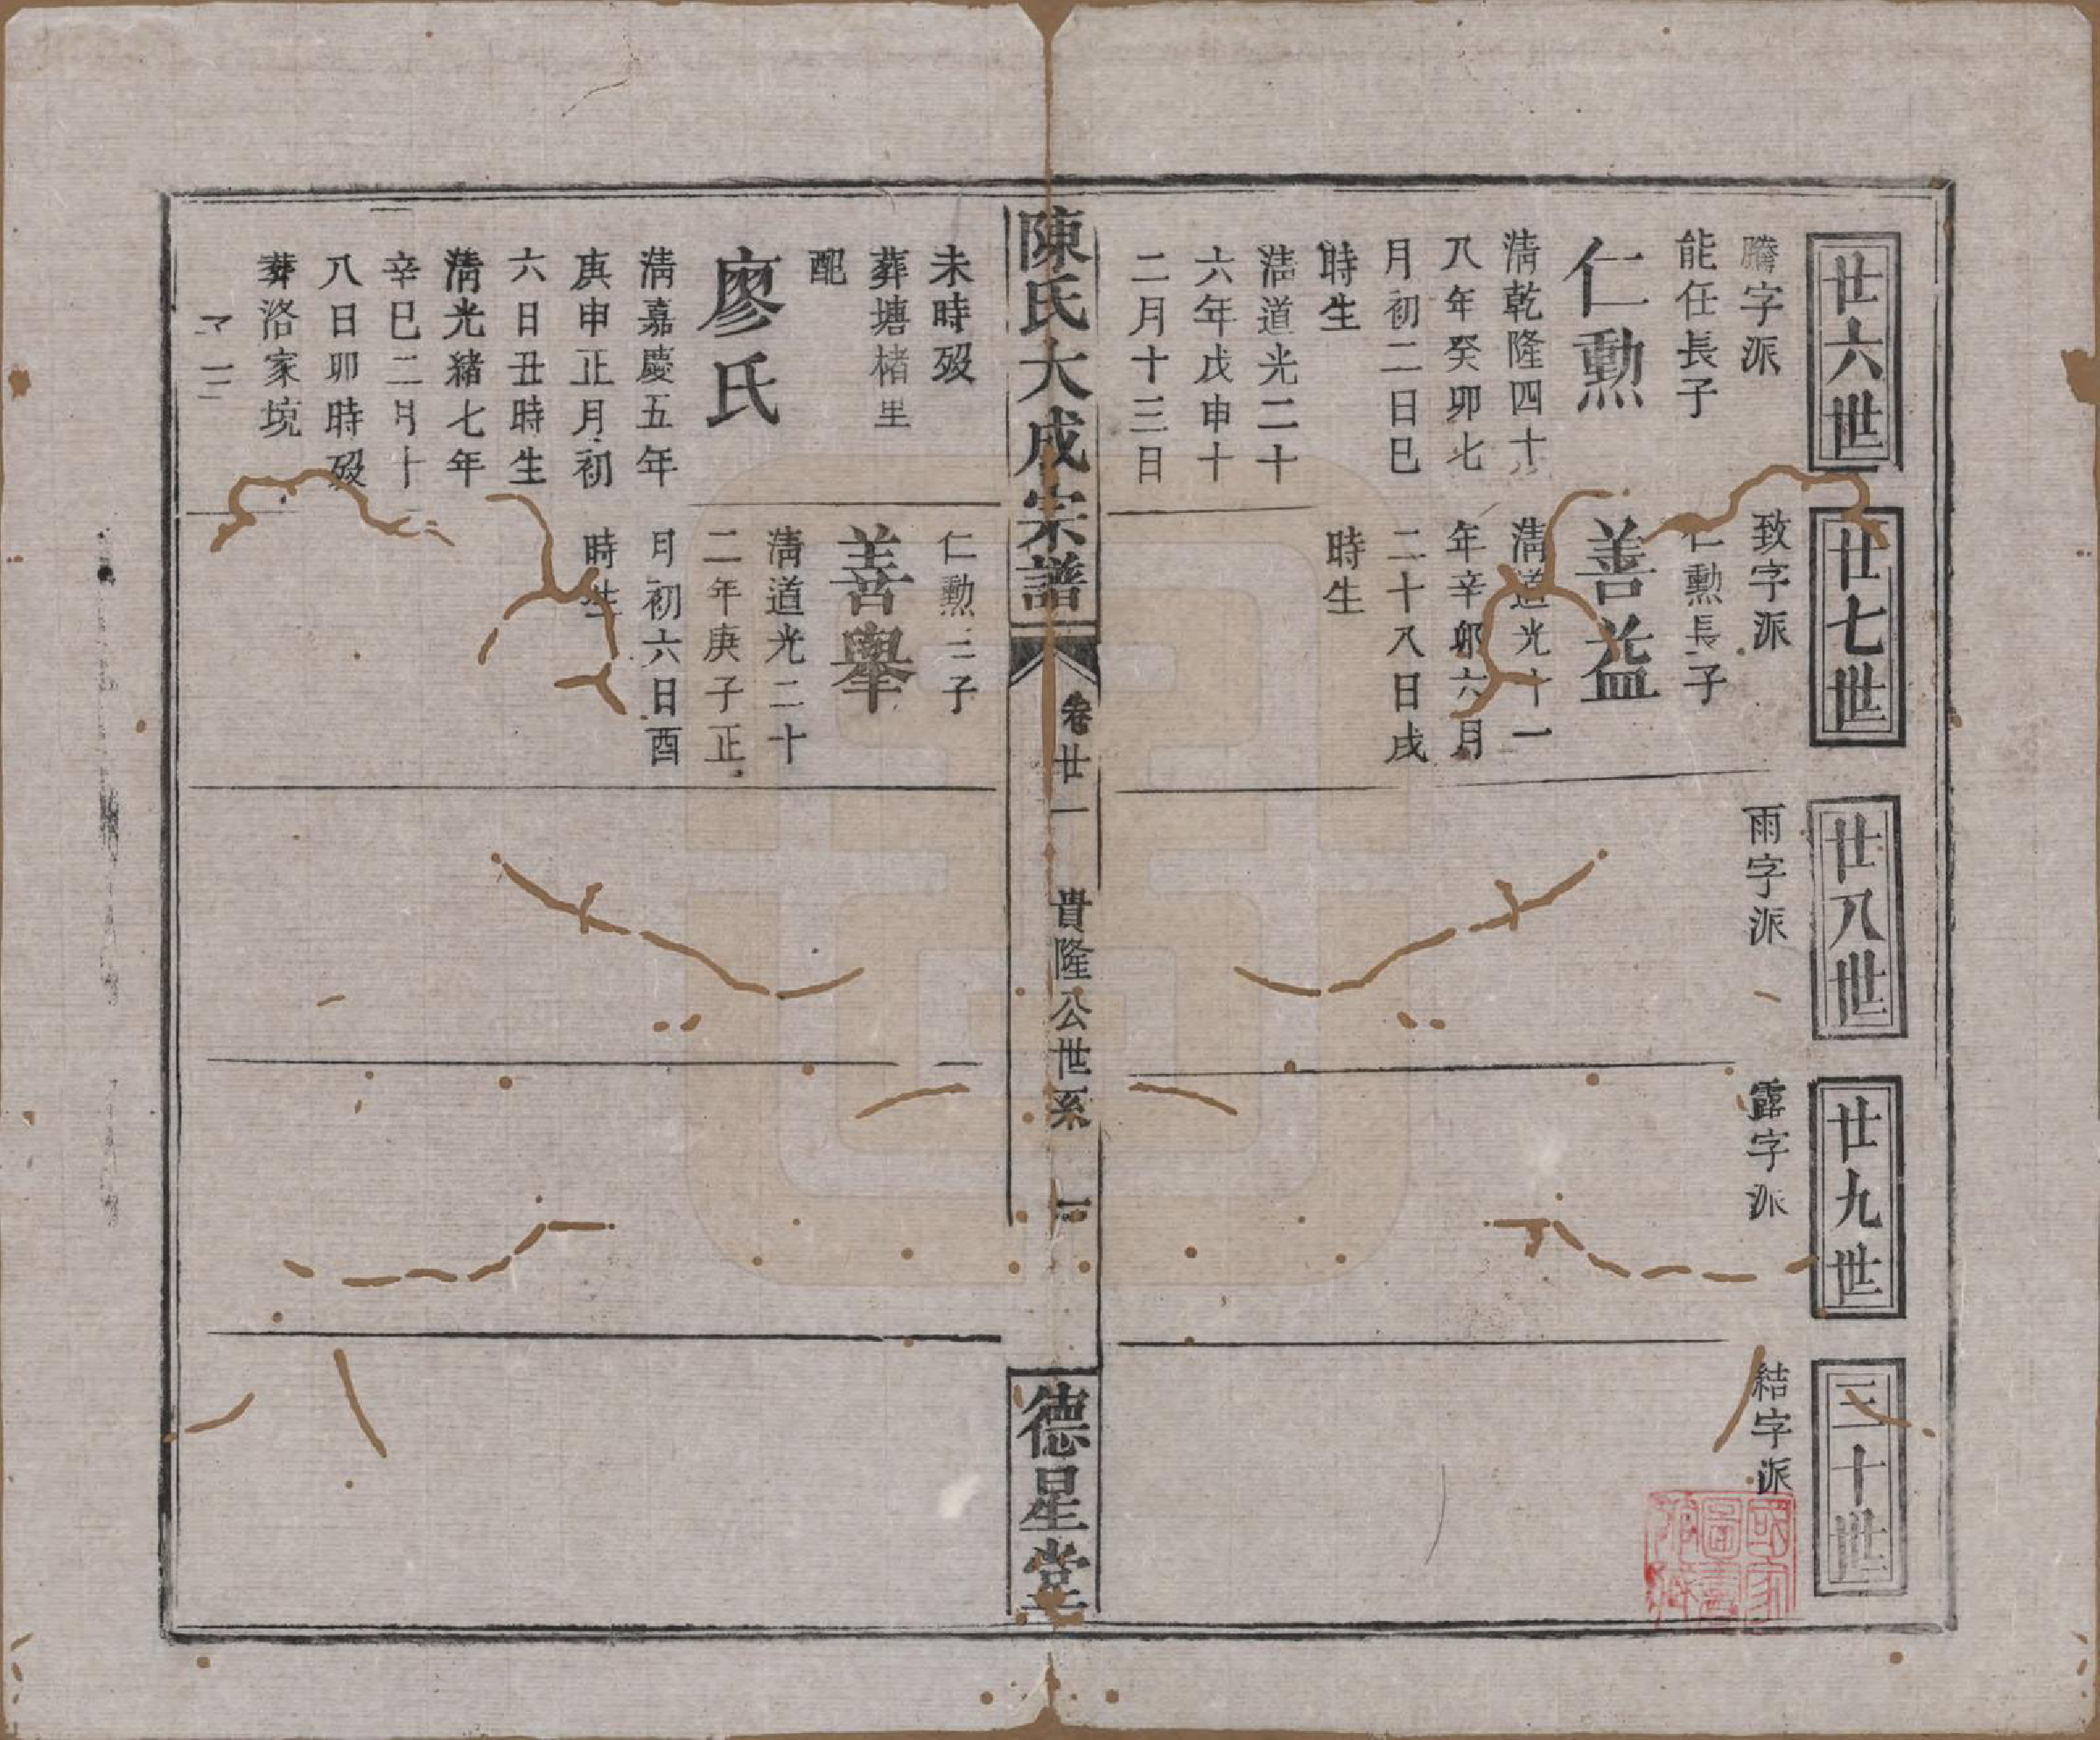 廿六世
騰字派
能任長子
仁勲
淸乾隆四十
八年癸卯七
月初二日巳
時生
淸道光二十
六年戊申十
二月十三日
廿七世
致字派
仁勲長子
善益
淸道光十一
年辛卯六月
二十八日戌
時生
廿八世
雨字派
廿九世
露字派
三十世
結字派
國家
圖書
館藏
陳氏大成宗譜
卷廿一
貴隆公世系
德星堂
未時歿
葬塘楮里
配
廖氏
淸嘉慶五年
庚申正月初
六日丑時生
淸光緒七年
辛巳二月十
八日卯時歿
葬洛家塊
子二
仁勲二子
善舉
淸道光二十
二年庚子正
月初六日酉
時生